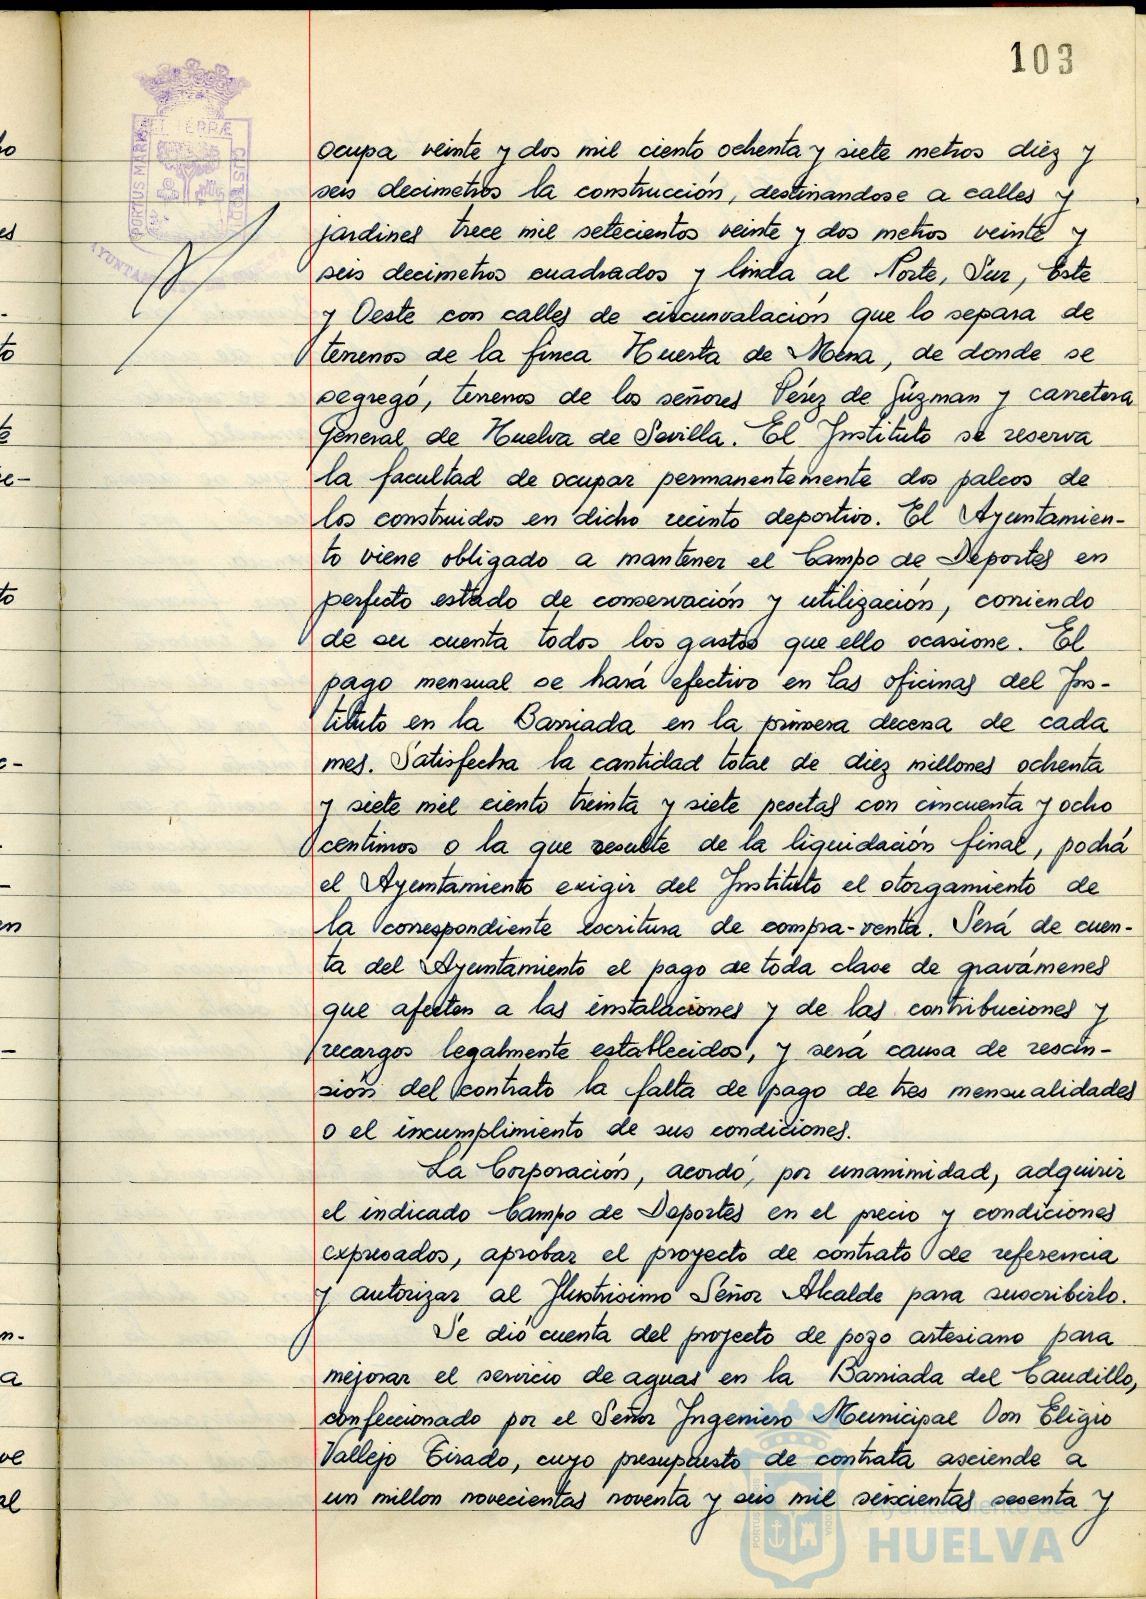 103
ET TERRÆ
PORTUS MARIS
CUSTODIA
ocupa veinte y dos mil ciento ochenta y siete metros diez y
seis decimetros la construcción, destinandose a calles y
jardines trece mil setecientos veinte y dos metros veinte y
seis decimetros cuadrados y linda al Norte, Sur, Este
y Oeste con calles de circunvalación que lo separa de
terrenos de la finca Huerta de Mena, de donde se
segregó, terrenos de los señores Pérez de Gúzman y carretera
General de Huelva de Sevilla. El Instituto se reserva
la facultad de ocupar permanentemente dos palcos de
los construidos en dicho recinto deportivo. El Ayuntamien-
to viene obligado a mantener el Campo de Deportes en
perfecto estado de conservación y utilización, corriendo
de su cuenta todos los gastos que ello ocasione. El
pago mensual se hará efectivo en las oficinas del Ins-
tituto en la Barriada en la primera decena de cada
mes. Satisfecha la cantidad total de diez millones ochenta
y siete mil ciento treinta y siete pesetas con cincuenta y ocho
centimos o la que resulte de la liquidación final, podrá
el Ayuntamiento exigir del Instituto el otorgamiento de
la correspondiente escritura de compra-venta. Será de cuen-
ta del Ayuntamiento el pago de toda clase de gravámenes
que afecten a las instalaciones y de las contribuciones y
recargos legalmente establecidos, y será causa de rescin-
sión del contrato la falta de pago de tres mensualidades
o el incumplimiento de sus condiciones.
La Corporación, acordó, por unanimidad, adquirir
el indicado Campo de Deportes en el precio y condiciones
expresados, aprobar el proyecto de contrato de referencia
y autorizar al Ilustrisimo Señor Alcalde para suscribirlo.
Se dió cuenta del proyecto de pozo artesiano para
mejorar el servicio de aguas en la Barriada del Caudillo,
confeccionado por el Señor Ingeniero Municipal Don Eligio
Vallejo Tirado, cuyo presupuesto de contrata asciende a
un millon novecientas noventa y seis mil seiscientas sesenta y
Ayuntamiento de
HUELVA